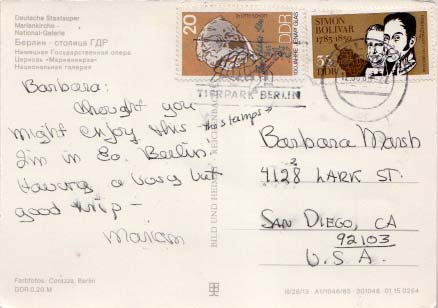 Deutsche Staatsoper
Marienkirche -
National-Galerie
Берлин - столица ГДР
Немецкая Государственная опера
Церковь «Мариенкирхе»
Национальная галерея
Barbara:
thought you
might enjoy this - the stamps →
I'm in Ea. Berlin!
Having a busy but
good trip -
Mariam
Farbfotos: Corazza, Berlin
DDR 0,20 M
BILD UND HEIMAT REICHENBACH
20
DDR
SIMON
BOLIVAR
1783-1830
35
DDR
TIERPARK BERLIN
Barbara Marsh
4128 LARK ST.
SAN DIEGO, CA
92103
U.S.A.